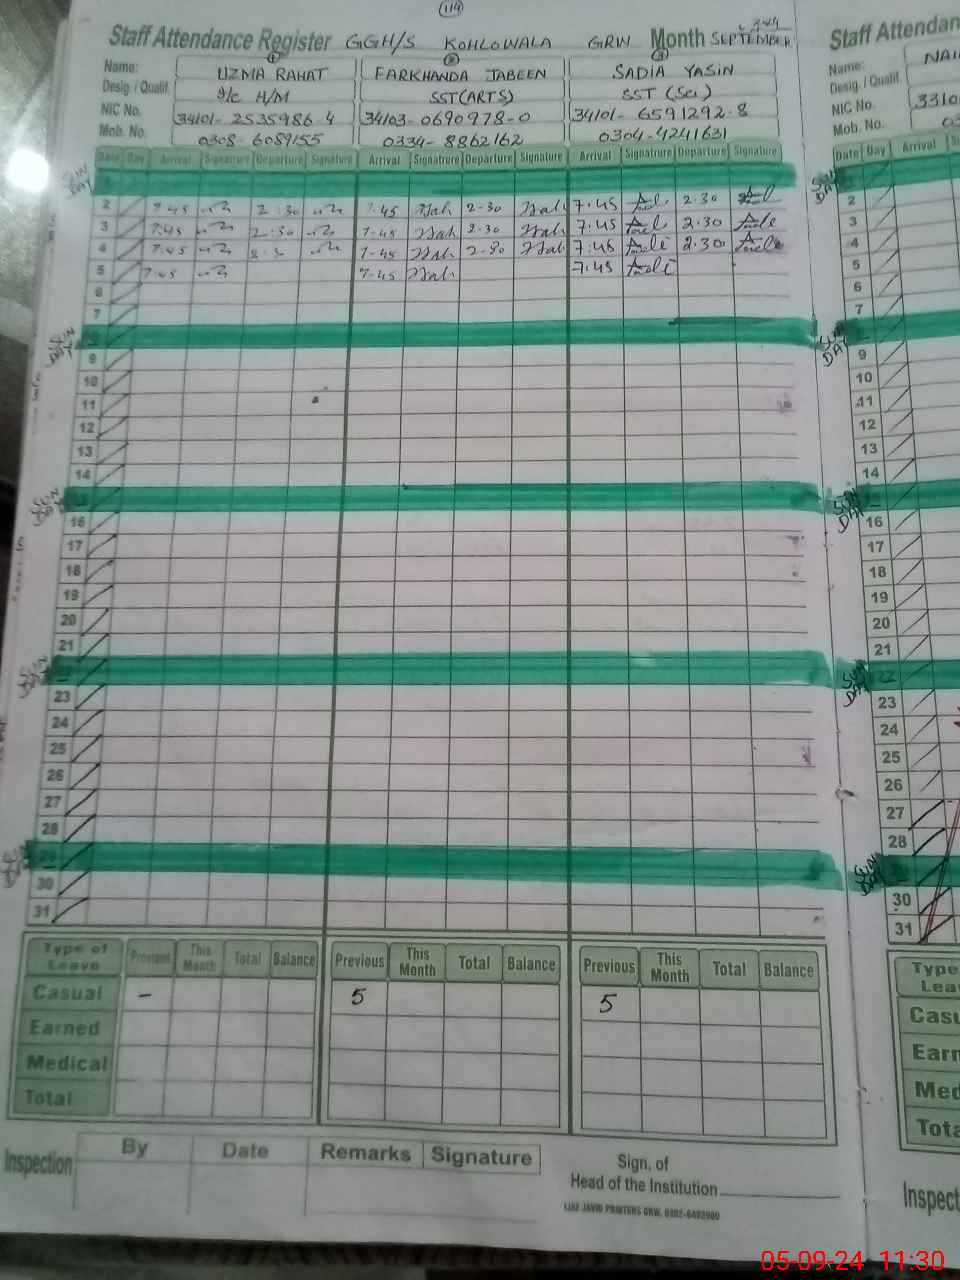 114
Staff Attendance Register GGH/S KOHLOWALA GRW Month SEPTEMBER Staff Attendan
Name: UZMA RAHAT FARKHANDA JABEEN SADIA YASIN Name:
Desig. / Qualif. I/c H/M SST(ARTS) SST (Sci) Desig. / Qualif.
NIC No. 34101-2535986-4 34103-0690978-0 34101-6591292-8 NIC No. 3310
Mob. No. 0308-6089155 0334-8862162 0304-4241631 Mob. No. 03
Date Day Arrival Signature Departure Signature Arrival Signatrure Departure Signature Arrival Signatrure Departure Signature Date Day Arrival
SUN DAY SUN DAY
2 7.45 2.30 7.45 2-30 7.45 2.30 2
3 7.45 2.30 7-45 2-30 7.45 2.30 3
4 7.45 7-45 2-30 7.45 2.30 4
5 7.45 7-45 7.45 5
6 6
7 7
SUN DAY SUN DAY
9 9
10 10
11 11
12 12
13 13
14 14
SUN DAY SUN DAY
16 16
17 17
18 18
19 19
20 20
21 21
SUN DAY 22 SUN DAY 22
23 23
24 24
25 25
26 26
27 27
28 28
SUN DAY 29 SUN DAY
30 30
31 31
Type of Leave Previous This Month Total Balance Previous This Month Total Balance Previous This Month Total Balance Type Lea
Casual - 5 5 Casu
Earned Earn
Medical Med
Total Tota
Inspection By Date Remarks Signature Sign. of Inspect
Head of the Institution
IJAZ JAVID PRINTERS GRW. 0302-6492900
05-09-24 11:30